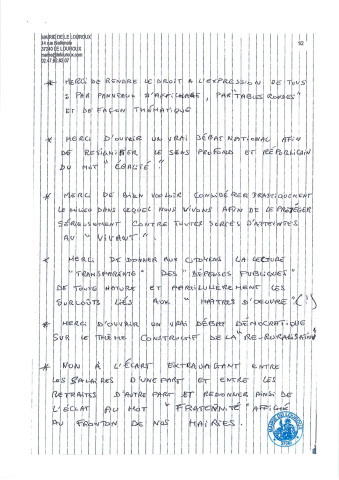 MAIRIE DE LE LOUROUX
37240 LE LOUROUX
* MERCI DE RENDRE LE DROIT A L'EXPRESSION DE TOUS
: PAR PANNEAUX D'AFFICHAGE, PAR "TABLES RONDES"
ET DE FAÇON THÉMATIQUE
* MERCI D'OUVRIR UN VRAI DÉBAT NATIONAL AFIN
DE RESIGNIFIER LE SENS PROFOND ET RÉPUBLICAIN
DU MOT "ÉGALITÉ".
* MERCI DE BIEN VOULOIR CONSIDÉRER DRASTIQUEMENT
LE MILIEU DANS LEQUEL NOUS VIVONS AFIN DE LE PROTÉGER
SÉRIEUSEMENT CONTRE TOUTES SORTES D'ATTEINTES
AU "VIVANT"
* MERCI DE DONNER AUX CITOYENS LA LECTURE
"TRANSPARENTE" DES "DÉPENSES PUBLIQUES"
DE TOUTE NATURE ET PARTICULIÈREMENT LES
SURCOÛTS LIÉS AUX "MAÎTRES D'OEUVRE" (!)
* MERCI D'OUVRIR UN VRAI DÉBAT DÉMOCRATIQUE
SUR LE THÈME CONSTRUCTIF DE LA "RE-RURALISATION"
* NON À L'ÉCART EXTRAVAGANT ENTRE
LES SALAIRES D'UNE PART ET ENTRE LES
RETRAITES D'AUTRE PART ET REDONNER AINSI DE
L'ÉCLAT AU MOT "FRATERNITÉ" AFFICHÉ
AU FRONTON DE NOS MAIRIES.